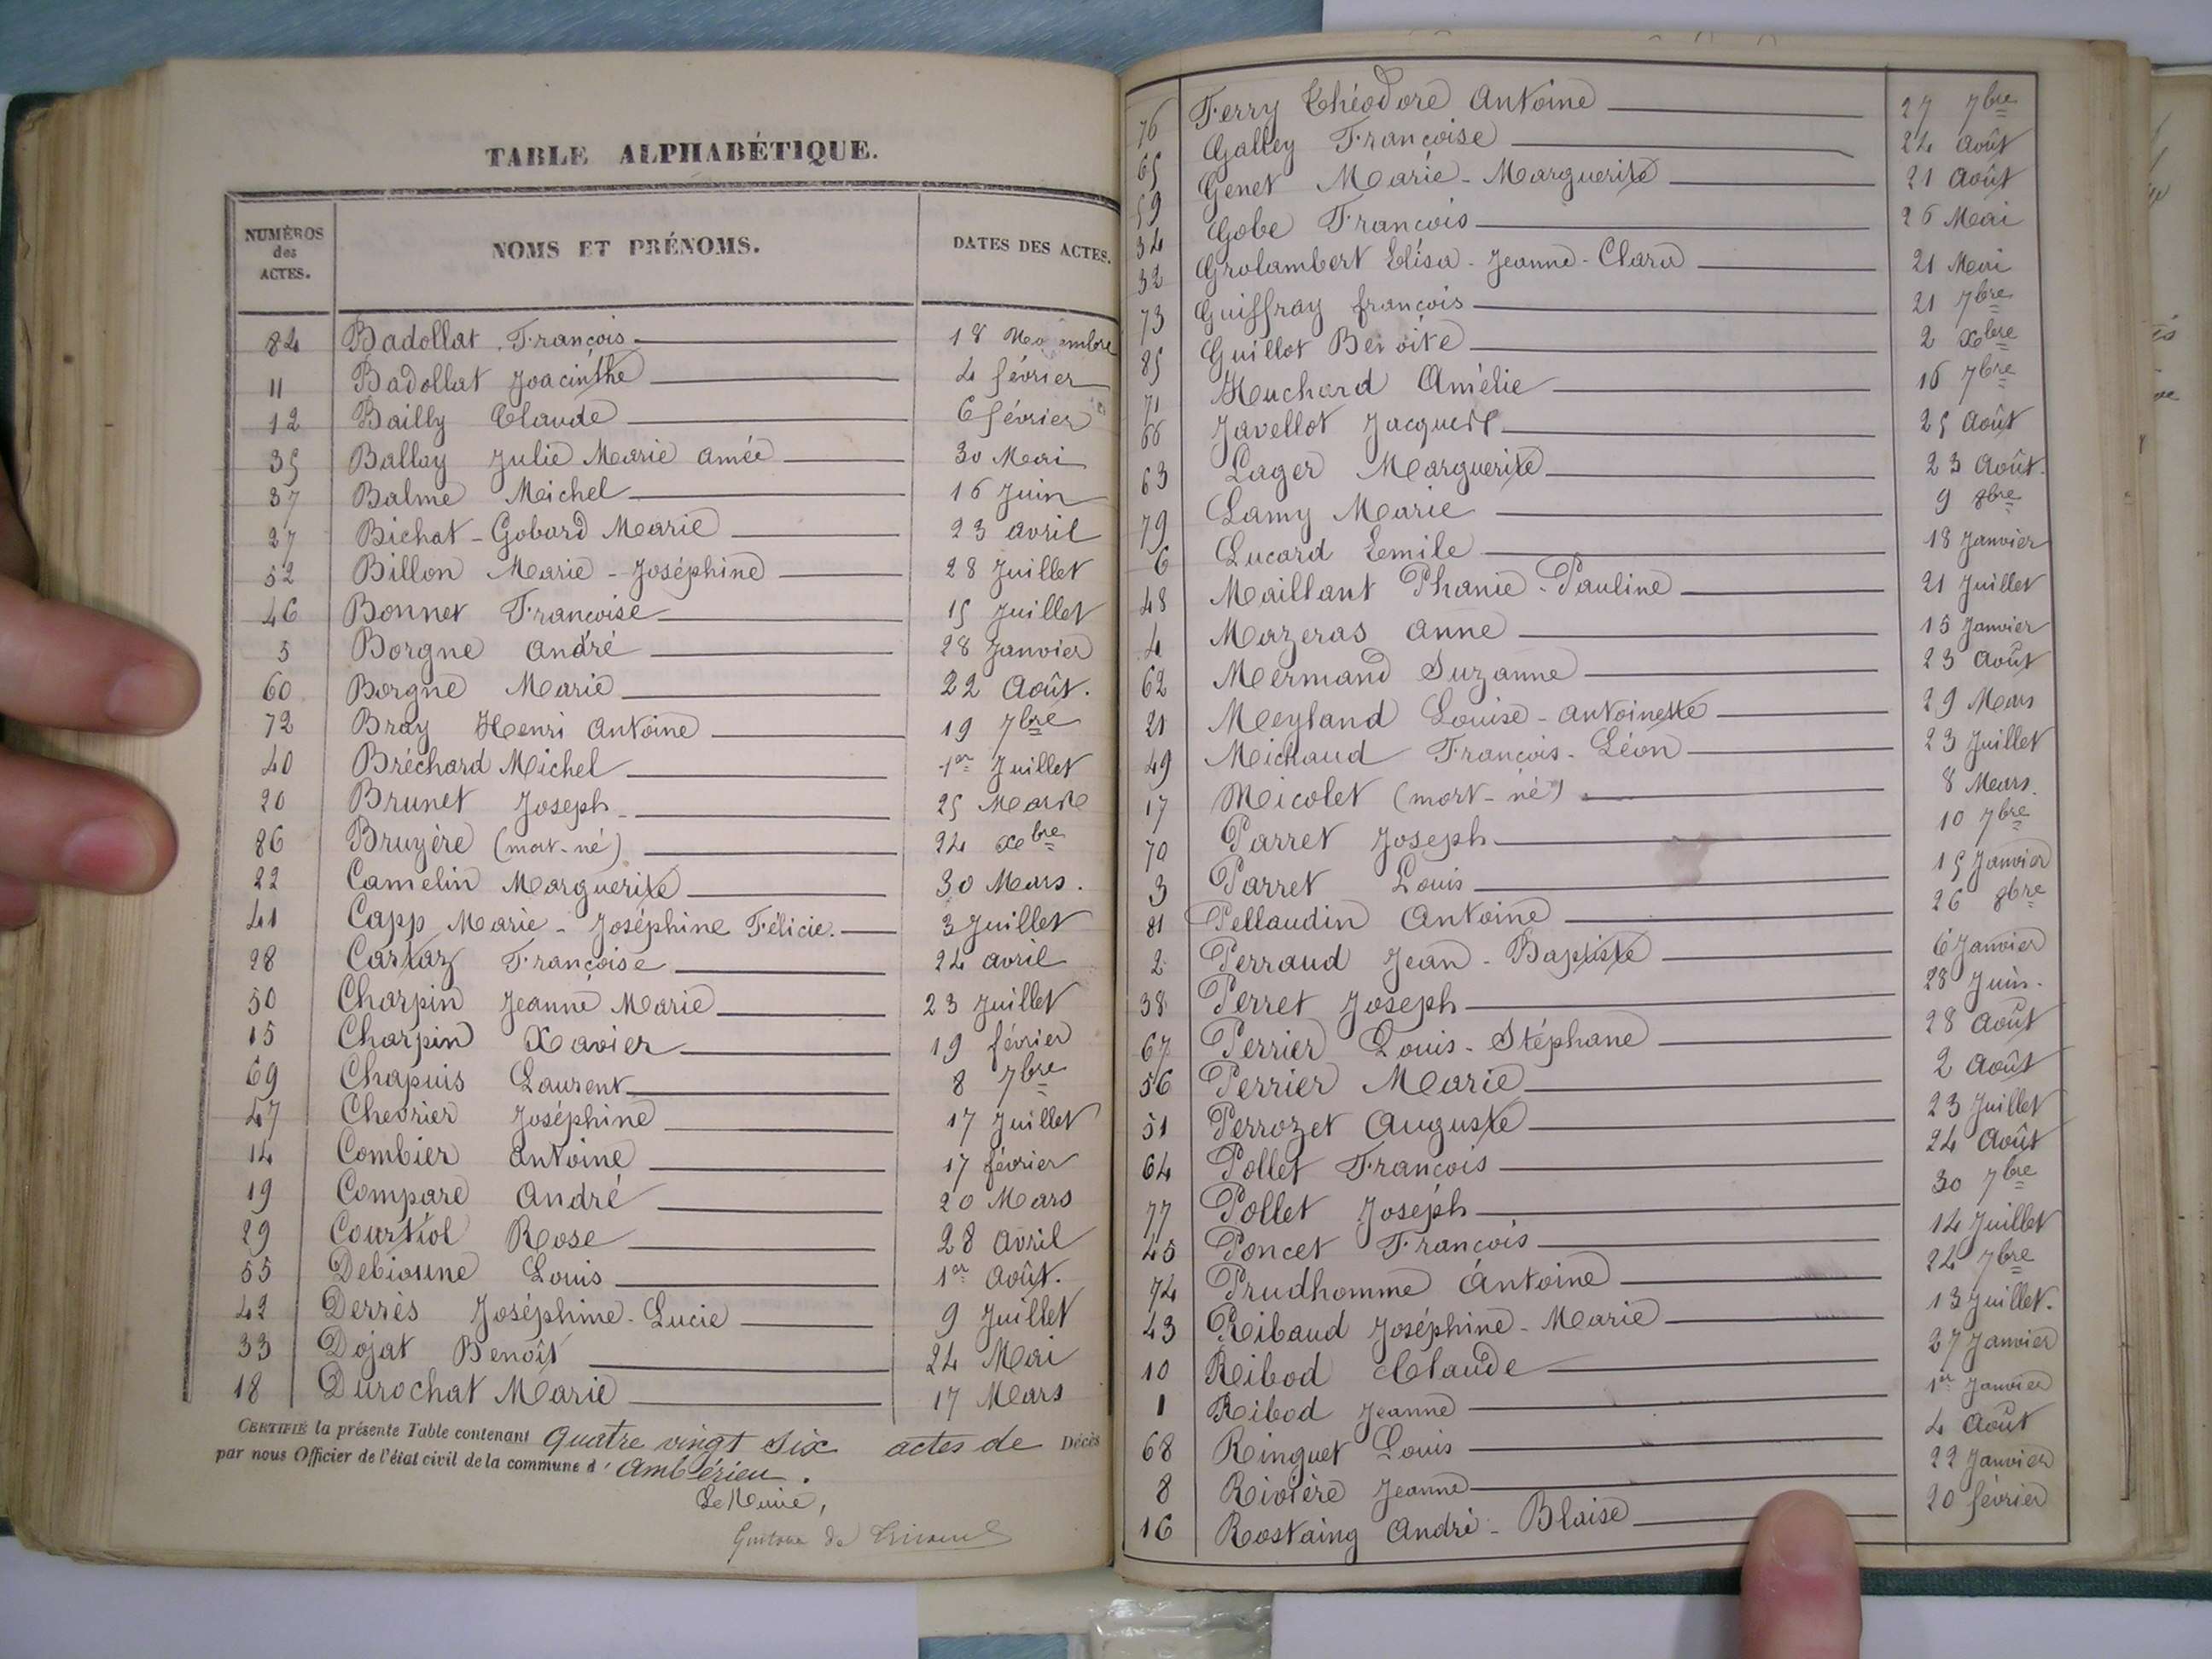 TABLE ALPHABÉTIQUE.
NUMÉROS des ACTES. NOMS ET PRÉNOMS. DATES DES ACTES.
84 Badollat François 18 Novembre
11 Badollat Joacinthe 4 février
12 Bailly Claude 6 février
35 Ballay Julie Marie Amée 30 Mai
37 Balme Michel 16 Juin
27 Bichat-Gobard Marie 23 avril
52 Billon Marie-Joséphine 28 Juillet
46 Bonnet Françoise 15 Juillet
5 Borgne André 28 Janvier
60 Borgne Marie 22 Août.
72 Bray Henri Antoine 19 7bre
40 Bréchard Michel 1er Juillet
20 Brunet Joseph 25 Mars
86 Bruyère (mort-né) 24 xbre
22 Camelin Marguerite 30 Mars.
41 Capp Marie-Joséphine Félicie. 3 Juillet
28 Cartaz Françoise 24 avril
50 Charpin Jeanne Marie 23 Juillet
15 Charpin Xavier 19 février
69 Chapuis Laurent 8 7bre
47 Chevrier Joséphine 17 Juillet
14 Combier Antoine 17 février
19 Compare André 20 Mars
29 Courtiol Rose 28 Avril
55 Debioune Louis 1er Août.
42 Derrès Joséphine-Lucie 9 Juillet
33 Dojat Benoît 24 Mai
18 Durochat Marie 17 Mars
CERTIFIÉ la présente Table contenant quatre vingt six actes de Décès
par nous Officier de l'état civil de la commune d'Ambérieu.
Le Maire,
Gustave de
76 Ferry Théodore Antoine 27 7bre
65 Galley Françoise 24 Août
59 Genet Marie-Marguerite 21 Août
34 Gobe François 26 Mai
32 Grolambert Elisa-Jeanne-Clara 21 Mai
73 Guiffray françois 21 7bre
85 Guillot Benoite 2 xbre
71 Huchard Amélie 16 7bre
66 Javellot Jacques 25 Août
63 Lager Marguerite 23 Août.
79 Lamy Marie 9 8bre
6 Lucard Emile 18 Janvier
48 Maillant Phanie-Pauline 21 Juillet
4 Mazeras Anne 15 Janvier
62 Mermand Suzanne 23 Août
21 Meyland Louise-Antoinette 29 Mars
49 Michaud François-Léon 23 Juillet
17 Micolet (mort-né) 8 Mars.
70 Parret Joseph 10 7bre
3 Parret Louis 15 Janvier
81 Pellaudin Antoine 26 8bre
2 Perraud Jean-Baptiste 6 Janvier
38 Perret Joseph 28 Juin.
67 Perrier Louis-Stéphane 28 Août
56 Perrier Marie 2 Août
51 Perrozet Auguste 23 Juillet
64 Pollet François 24 Août
77 Pollet Joseph 30 7bre
45 Poncet François 14 Juillet
74 Prudhomme Antoine 24 7bre
43 Ribaud Joséphine-Marie 13 Juillet.
10 Ribod Claude 27 Janvier
1 Ribod Jeanne 1er Janvier
68 Ringuet Louis 4 Août
8 Rivière Jeanne 22 Janvier
16 Rostaing André-Blaise 20 février